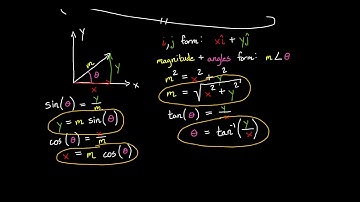 y
m
θ
y
x
x
sin(θ) = y/m
y = m sin(θ)
cos(θ) = x/m
x = m cos(θ)
i,j form: xî + yĵ
magnitude + angles form: m∠θ
m² = x² + y²
m = √(x² + y²)
tan(θ) = y/x
θ = tan⁻¹(y/x)